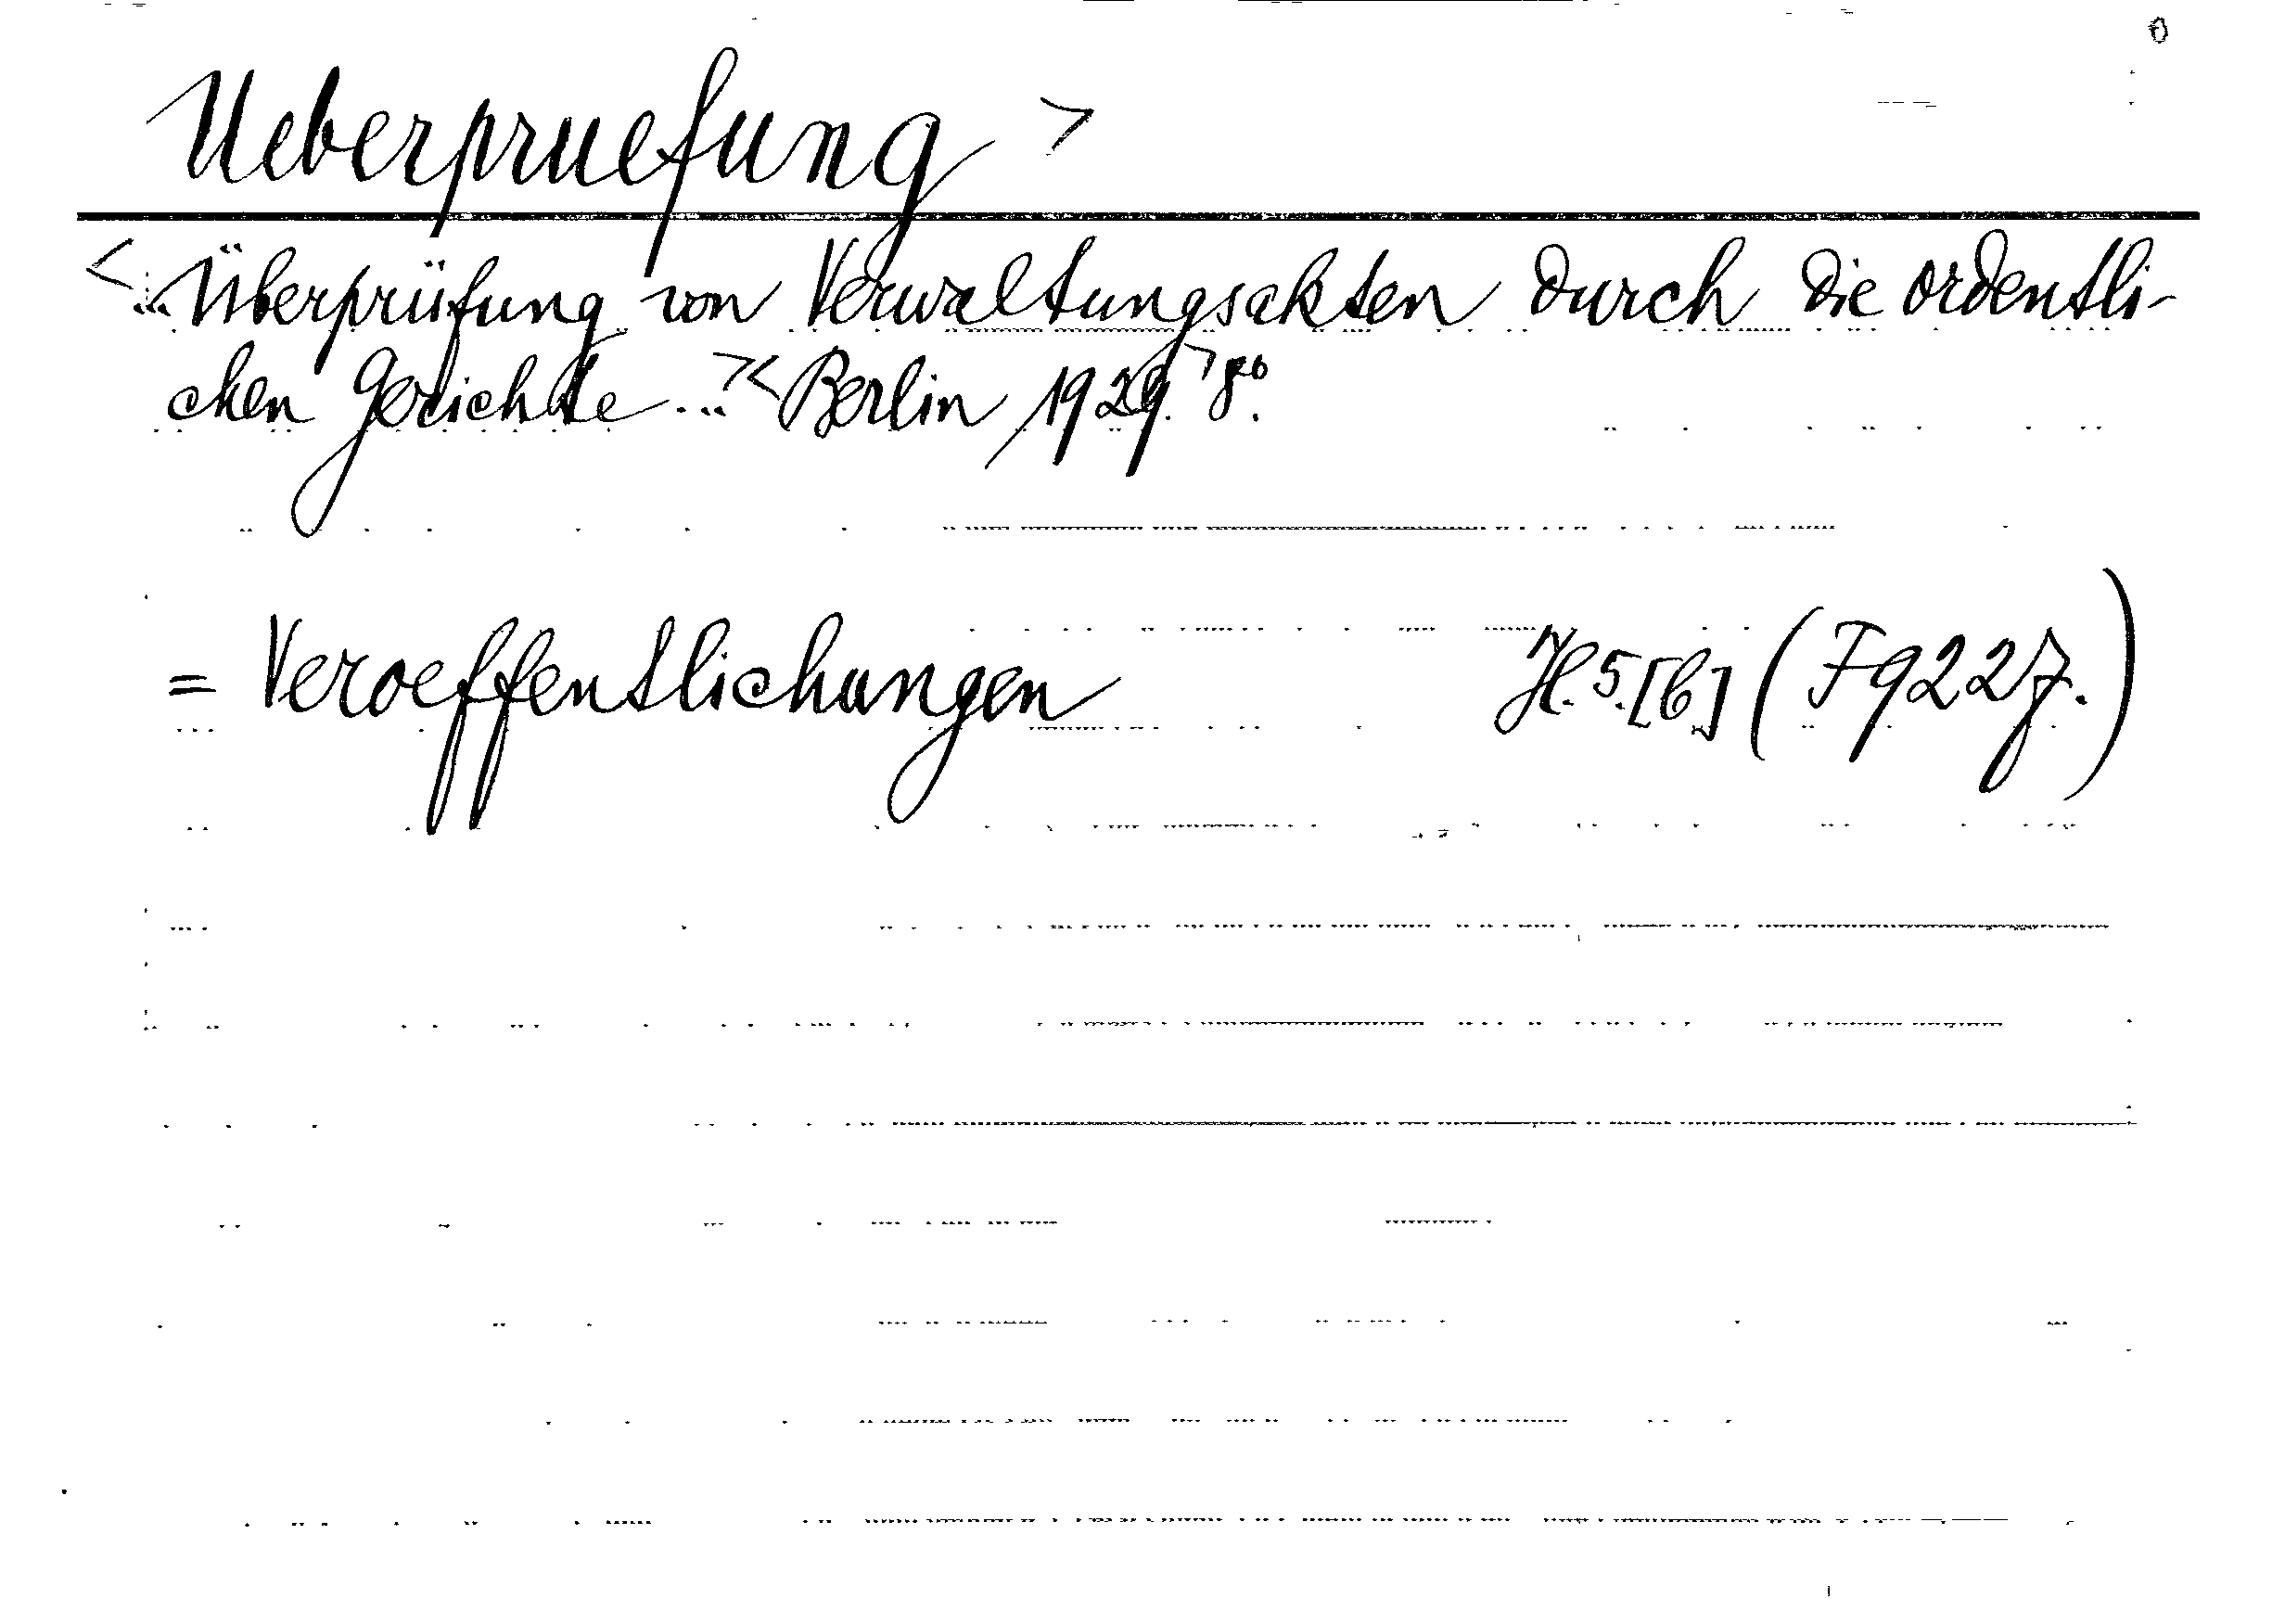 Ueberpruefung >
< ... Überprüfung von Verwaltungsakten durch die ordentli-
chen Gerichte ... > < Berlin 1929. > 8°.
= Veroeffentlichungen H. 5. [b] (Fq 227.)